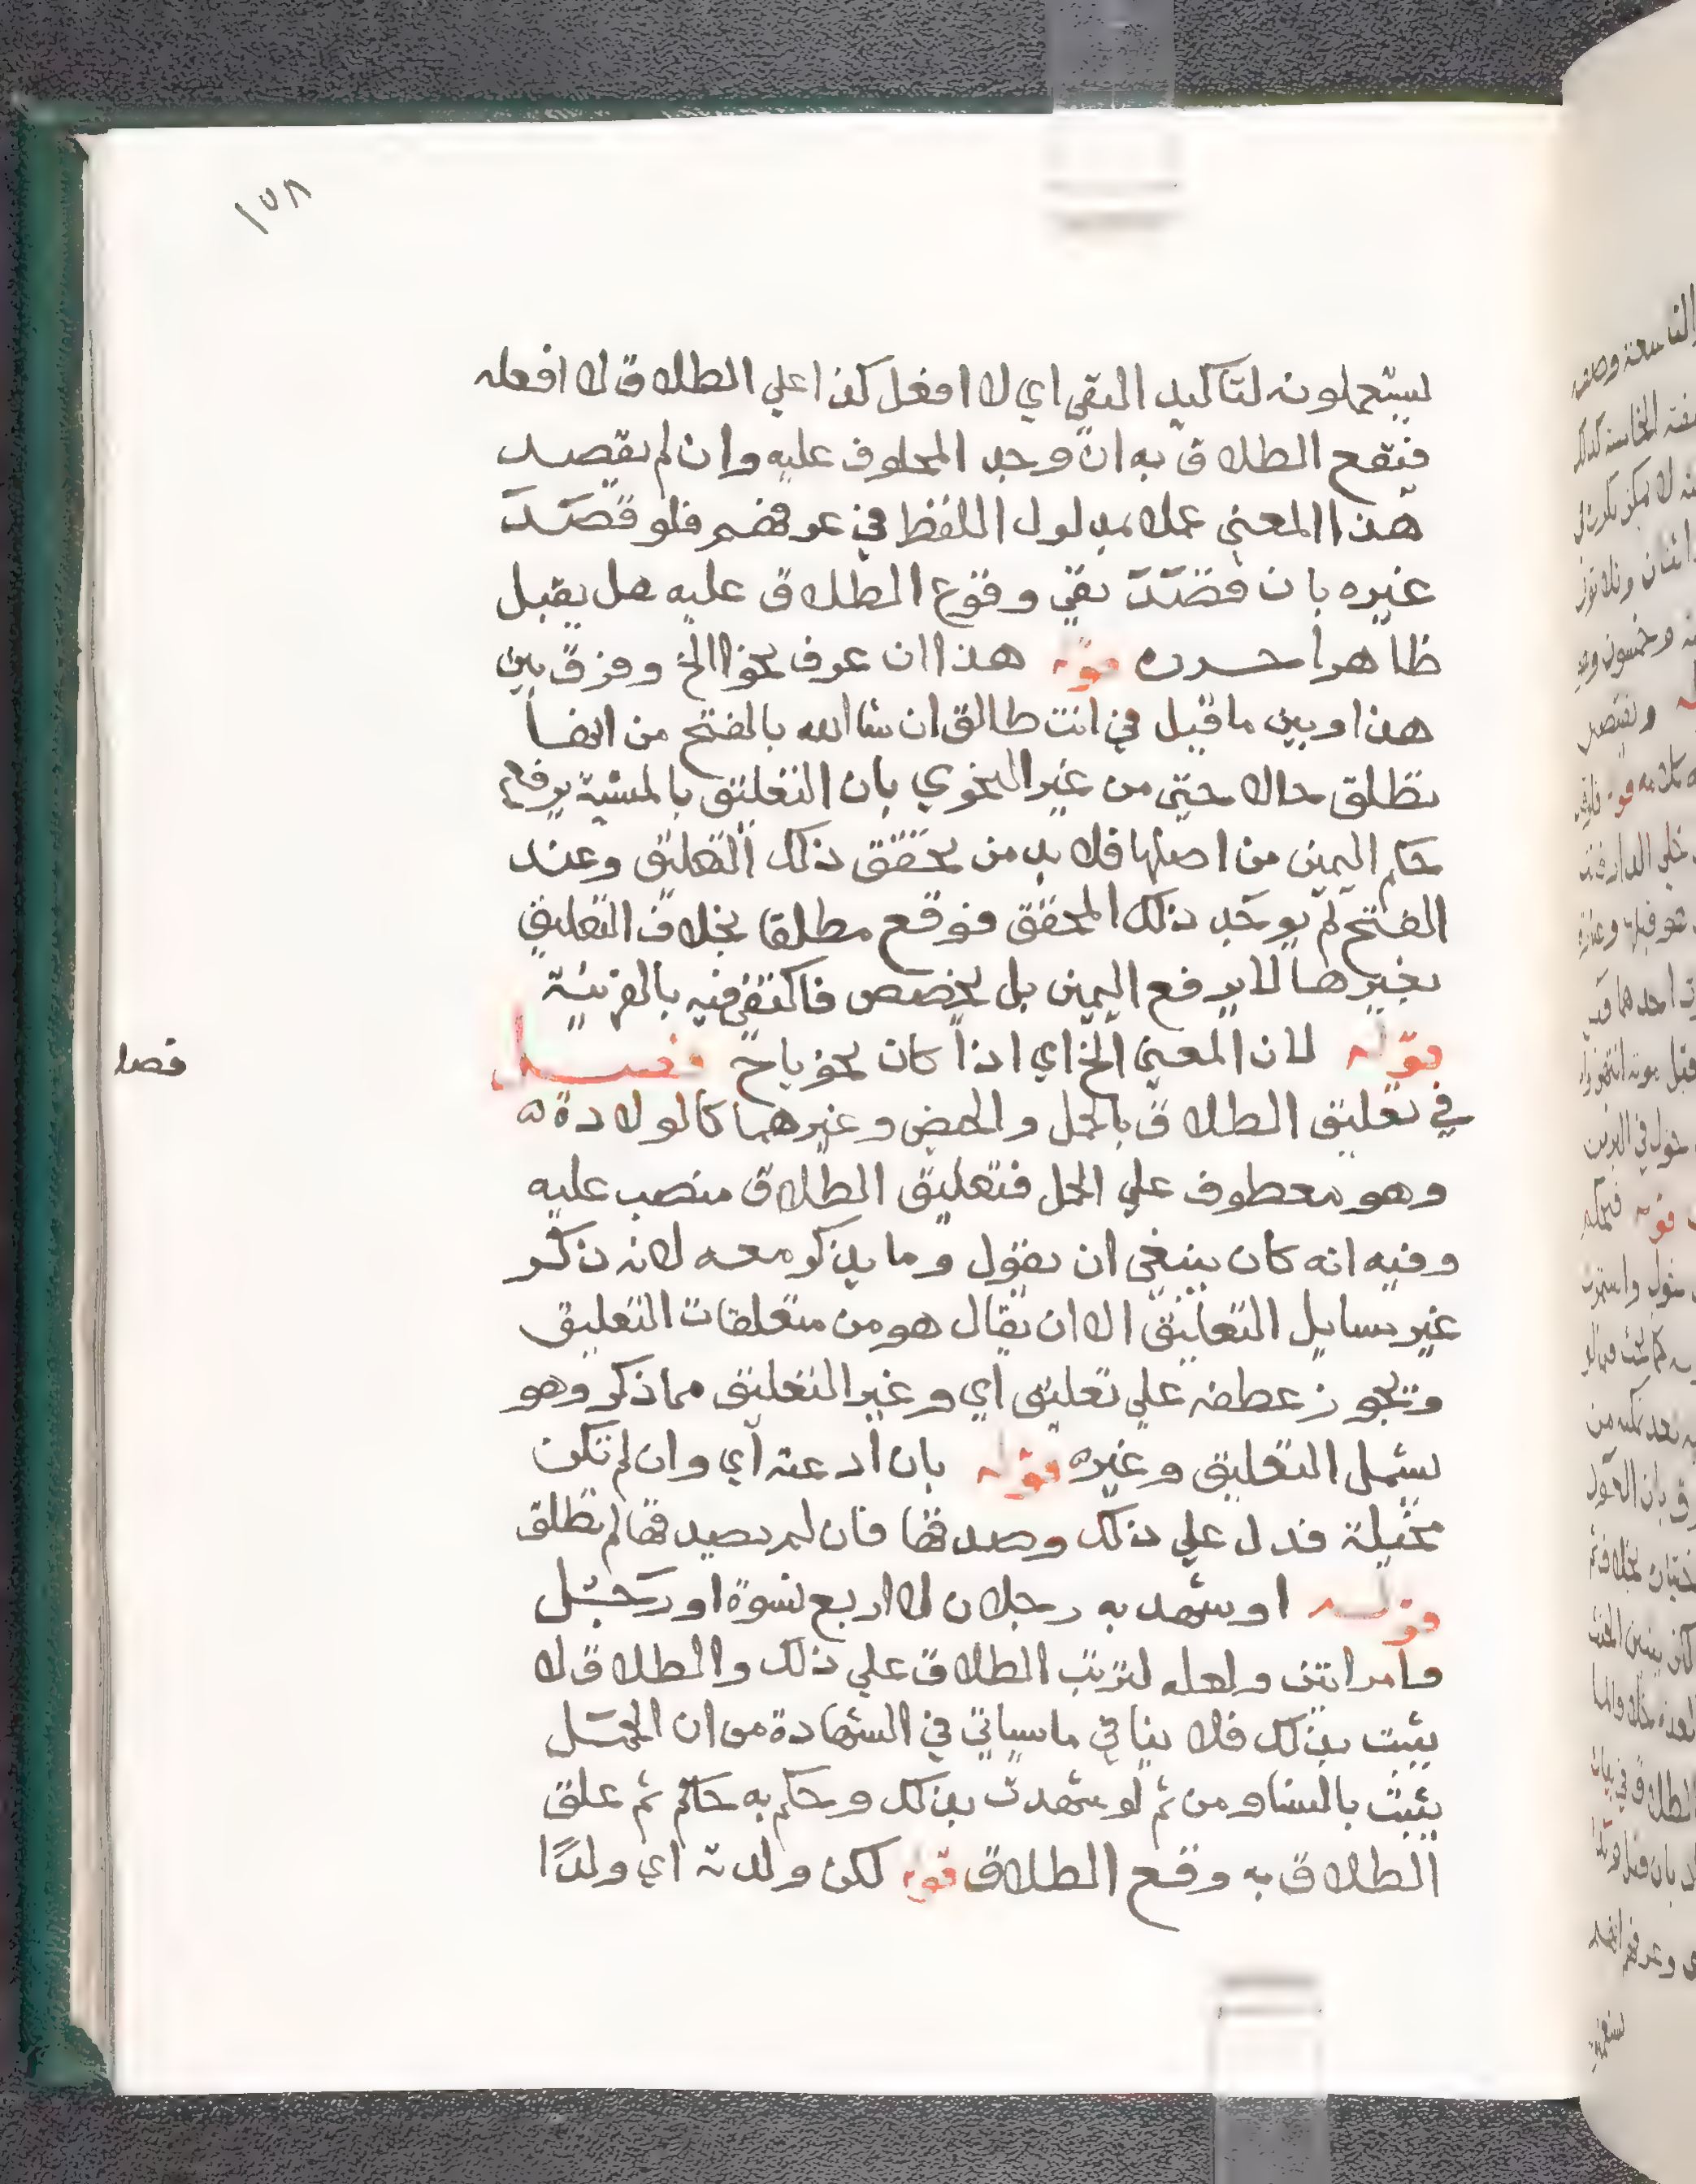 ١٥٨
يستعملونه لتاكيد النفي اي لا افعل كذا علي الطلاق لا افعله
فيقع الطلاق به ان وجد المحلوف عليه وان لم يقصد
هذا المعني عملا بمدلول اللفظ في عرفهم فلو قصد
غيره بان قصد نفي وقوع الطلاق عليه هل يقبل
ظاهرا حرره قوله هذا ان عرف نحوا الخ وفرق بين
هذا وبين ما قيل في انت طالق ان شا الله بالفتح من انها
تطلق حالا حتي من غير النحوي بان التعليق بالمشية يرفع
حكم اليمين من اصلها فلا بد من تحقق ذلك التعليق وعند
الفتح لم يوجد ذلك المحقق فوقع مطلقا بخلاف التعليق
بغيرها لا يرفع اليمين بل يخصص فاكتفي فيه بالقرينة
قوله لان المعني الخ اي اذا كان نحويا ح فصل
فصل
في تعليق الطلاق بالحمل والحيض وغيرهما كالولادة ه
وهو معطوف علي الحمل فتعليق الطلاق منصب عليه
وفيه انه كان ينبغي ان يقول وما يذكر معه لانه ذكر
غير مسايل التعليق الا ان يقال هو من متعلقات التعليق
ويجوز عطفه علي تعليق اي وغير التعليق مما ذكر وهو
يشمل التعليق وغيره قوله بان ادعته اي وان لم تكن
مخيلة فدل علي ذلك وصدقها فان لم يصدقها لم تطلق
قوله او شهد به رجلان لا اربع نسوة او رجل
وامراتين ولعله لترتب الطلاق علي ذلك والطلاق لا
يثبت بذلك فلا ينافي ما سياتي في الشهادة من ان الحمل
يثبت بالنسا ومن ثم لو شهدت بذلك وحكم به حاكم ثم علق
الطلاق به وقع الطلاق قوله لكن ولدته اي ولدا